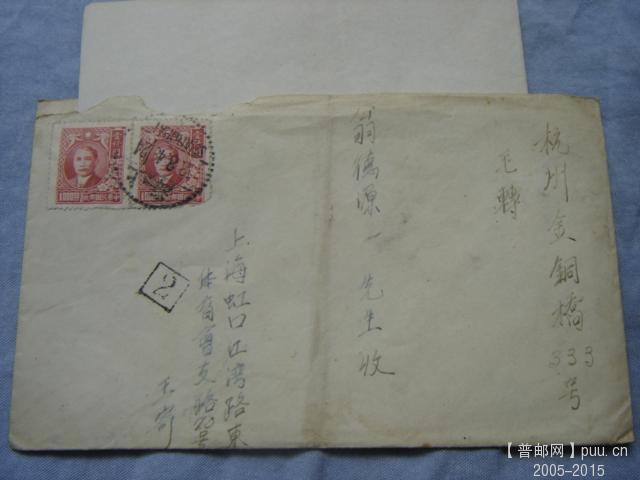 杭州金銅橋333号
王轉
翁德源一先生收
上海虹口江湾路東
体育會支路23号
王寄
2
1000
1000
SHANGHAI
【普邮网】puu.cn
2005-2015